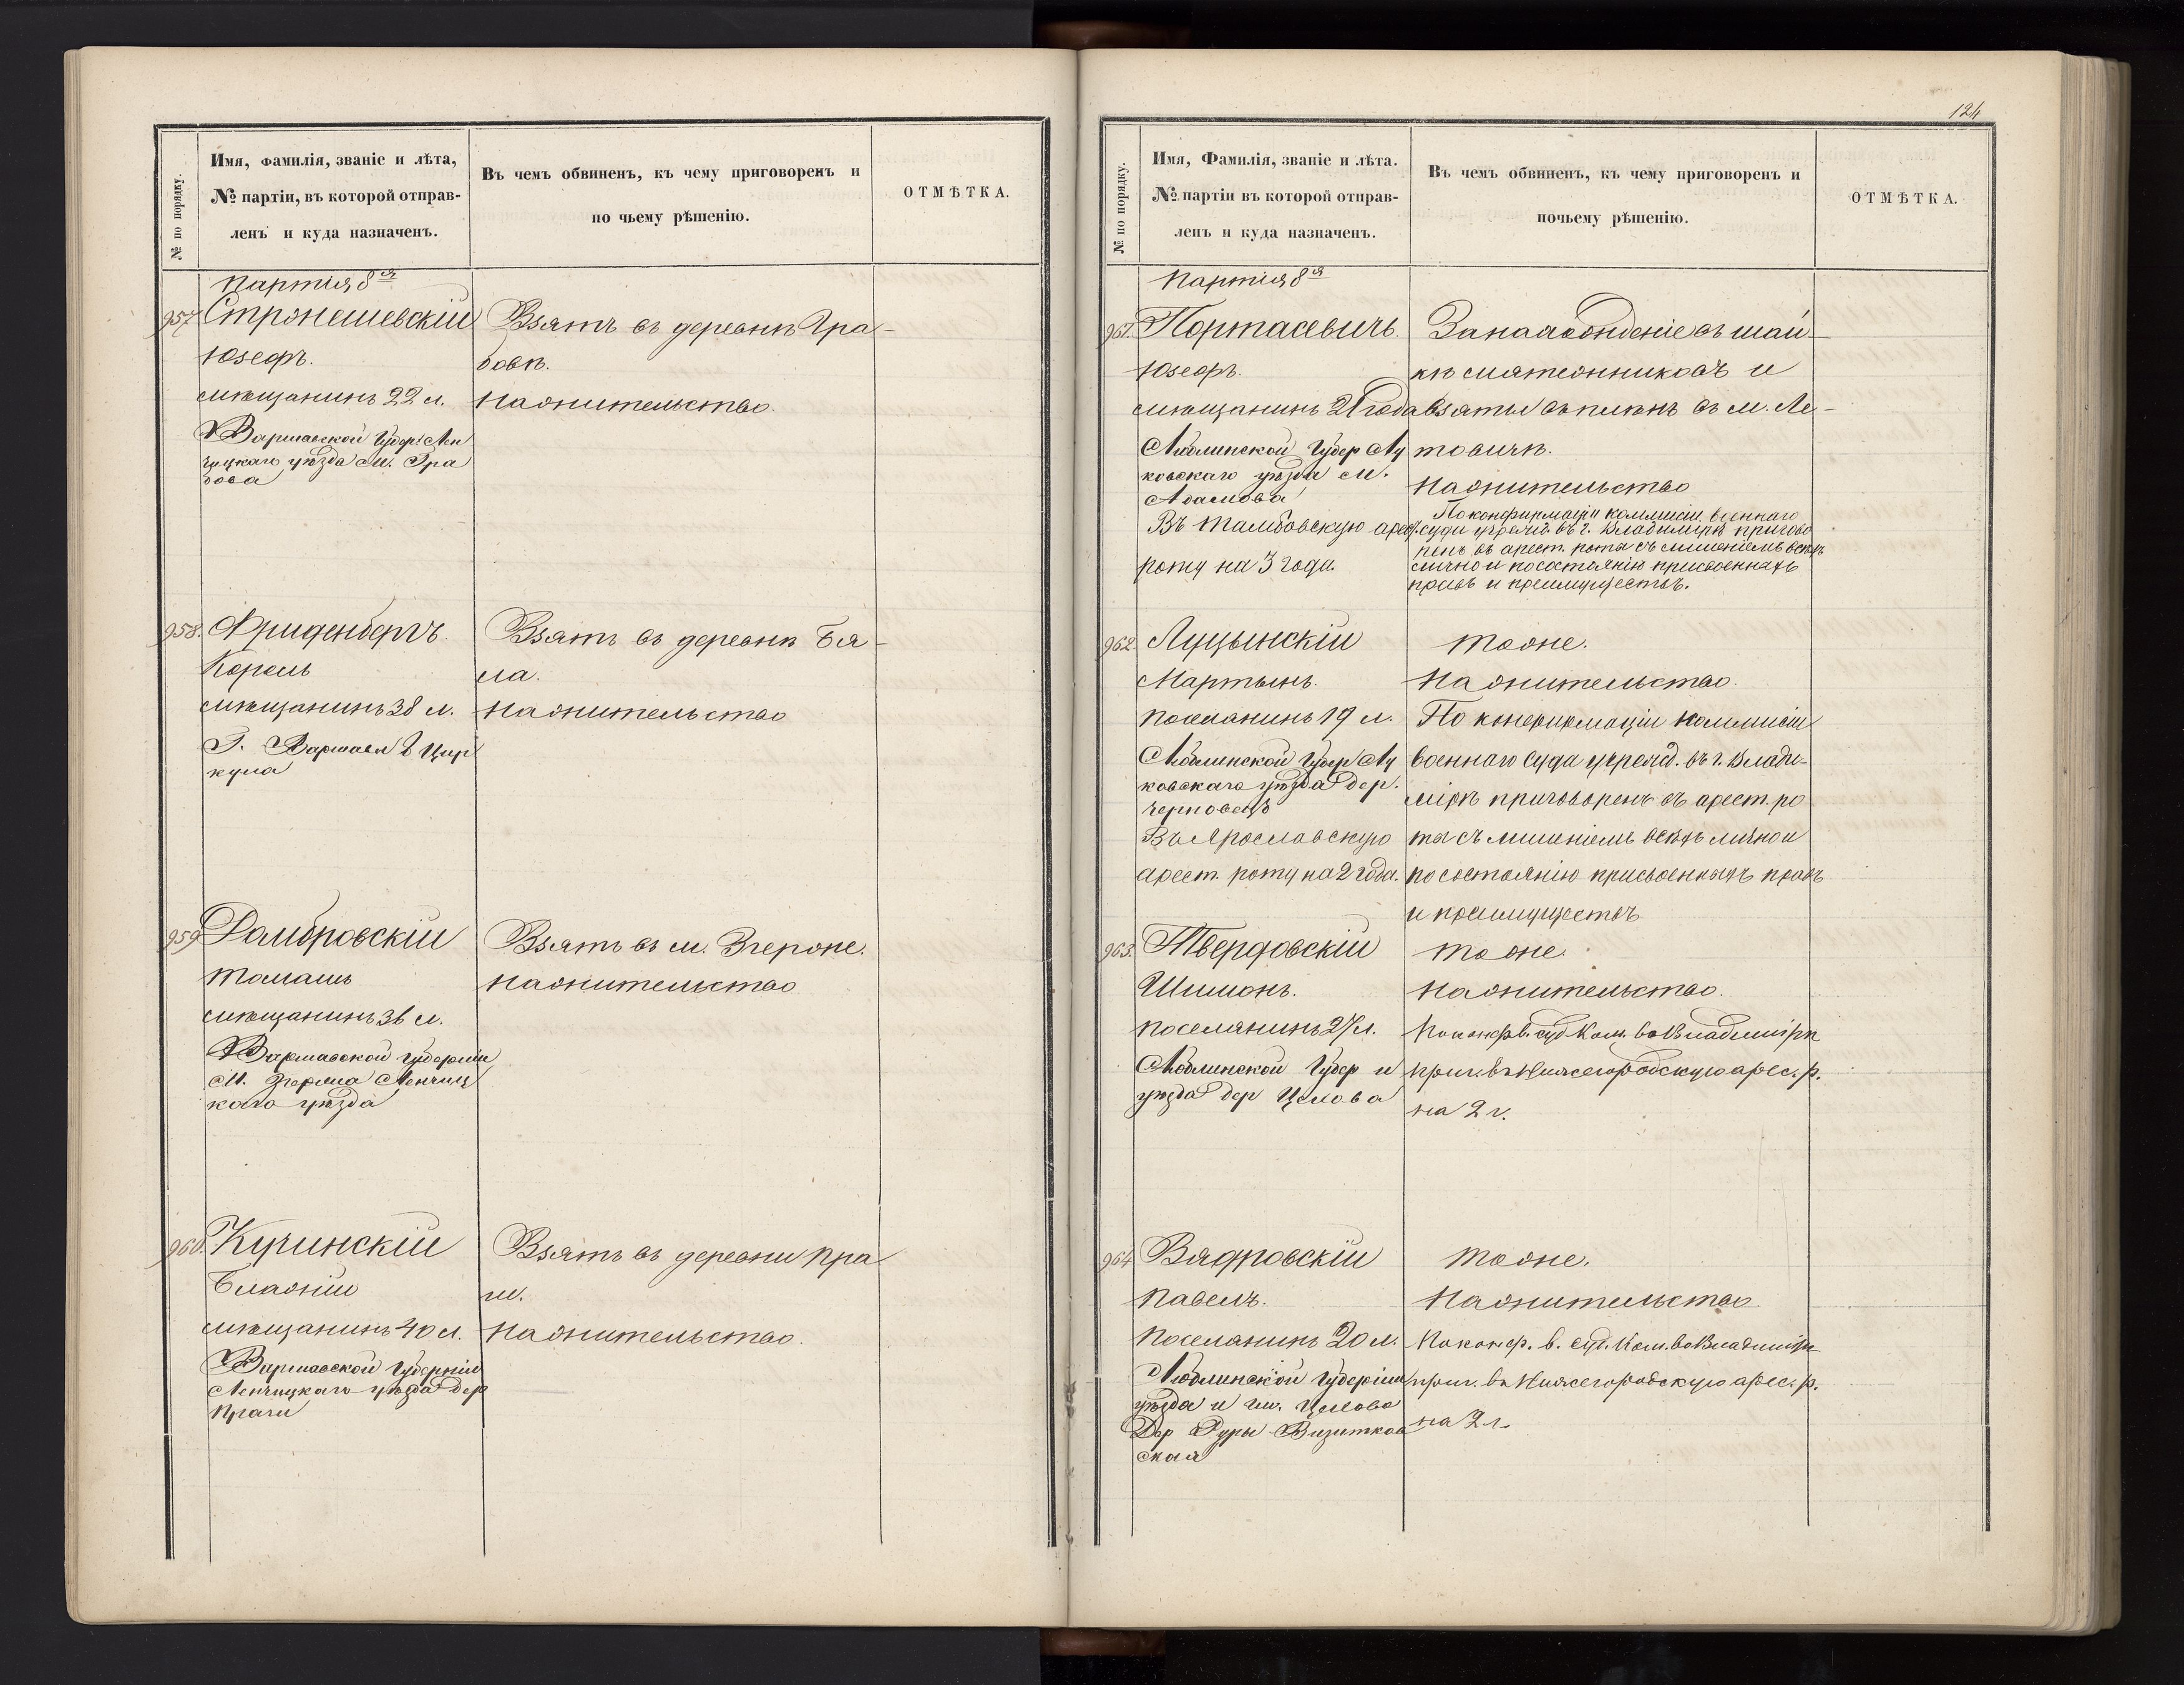 № по порядку.
Имя, фамилія, званіе и лѣта,
№ партіи, въ которой отправ-
ленъ и куда назначенъ.
Въ чемъ обвиненъ, къ чему приговоренъ и
по чьему рѣшенію.
ОТМѢТКА.
Партія 8я
957 Стронешевскій
Юзефъ.
мѣщанинъ 22 л.
Варшавской Губер: Лен
чицкаго уѣзда М. Гра
бова
Взятъ въ деревнѣ Гра-
бовѣ.
На жительство.
958. Фриденбергъ
Король
мѣщанинъ 38 л.
Г. Варшавы Цир
кула
Взятъ въ деревнѣ Бя-
ла.
На жительство
959 Домбровскій
Томашъ
мѣщанинъ 36 л.
Варшавской Губерніи
М. Згержа Ленчиц
каго уѣзда
Взятъ въ м. Згероне.
На жительство
960. Кучинскій
Блажій
мѣщанинъ 40 л.
Варшавской Губерніи
Ленчицкаго уѣзда дер
Праги
Взятъ въ деревни Пра
ги.
На жительство.
124
№ по порядку.
Имя, Фамилія, званіе и лѣта.
№ партіи въ которой отправ-
ленъ и куда назначенъ.
Въ чемъ обвиненъ, къ чему приговоренъ и
почьему рѣшенію.
ОТМѢТКА.
Партія 8я
961. Портасевичъ.
Юзефъ.
мѣщанинъ 21 года
Люблинской Губер Лу
ковскаго уѣзда м.
Адамова
Въ Тамбовскую арест.
роту на 3 года.
За нахожденіе въ шай-
кѣ мятежниковъ и
взятъ въ плѣнъ въ м. Ле-
товичѣ.
На жительство
По конфирмаціи коммисіи военнаго
суда учрежд. въ г. Владимірѣ пригово
ренъ въ арест. роты съ лишеніемъ всѣхъ
лично и по состоянію присвоенныхъ
правъ и преимуществъ.
962 Луцынскій
Мартынъ.
Поселанинъ 19 л.
Люблинской Губер Лу
ковскаго уѣзда дер.
Черновецъ
Въ Ярославскую
арест. роту на 2 года.
Тоже.
На жительство.
По конфирмаціи коммисіи
военнаго суда учрежд. въ г. Влади-
мірѣ приговоренъ въ арест. ро
ты съ лишеніемъ всѣхъ лично и
по состоянію присвоенныхъ правъ
и преимуществъ
963. Твердовскій
Шимонъ.
Поселянинъ 27 л.
Люблинской Губер и
уѣзда дер Целова
Тоже.
На жительство.
По конф в. суд. Ком. во Владимірѣ
приг. въ Нижегородскую арес. р.
на 2 г.
964 Вядровскій
Павелъ.
Поселанинъ 20 л.
Люблинской Губерніи
уѣзда и гм. Целова
Дер Дуры
ская
Тоже.
На жительство.
По конф. в. суд. Ком. во Владимірѣ
приг. въ Нижегородскую арес. р.
на 2 г.